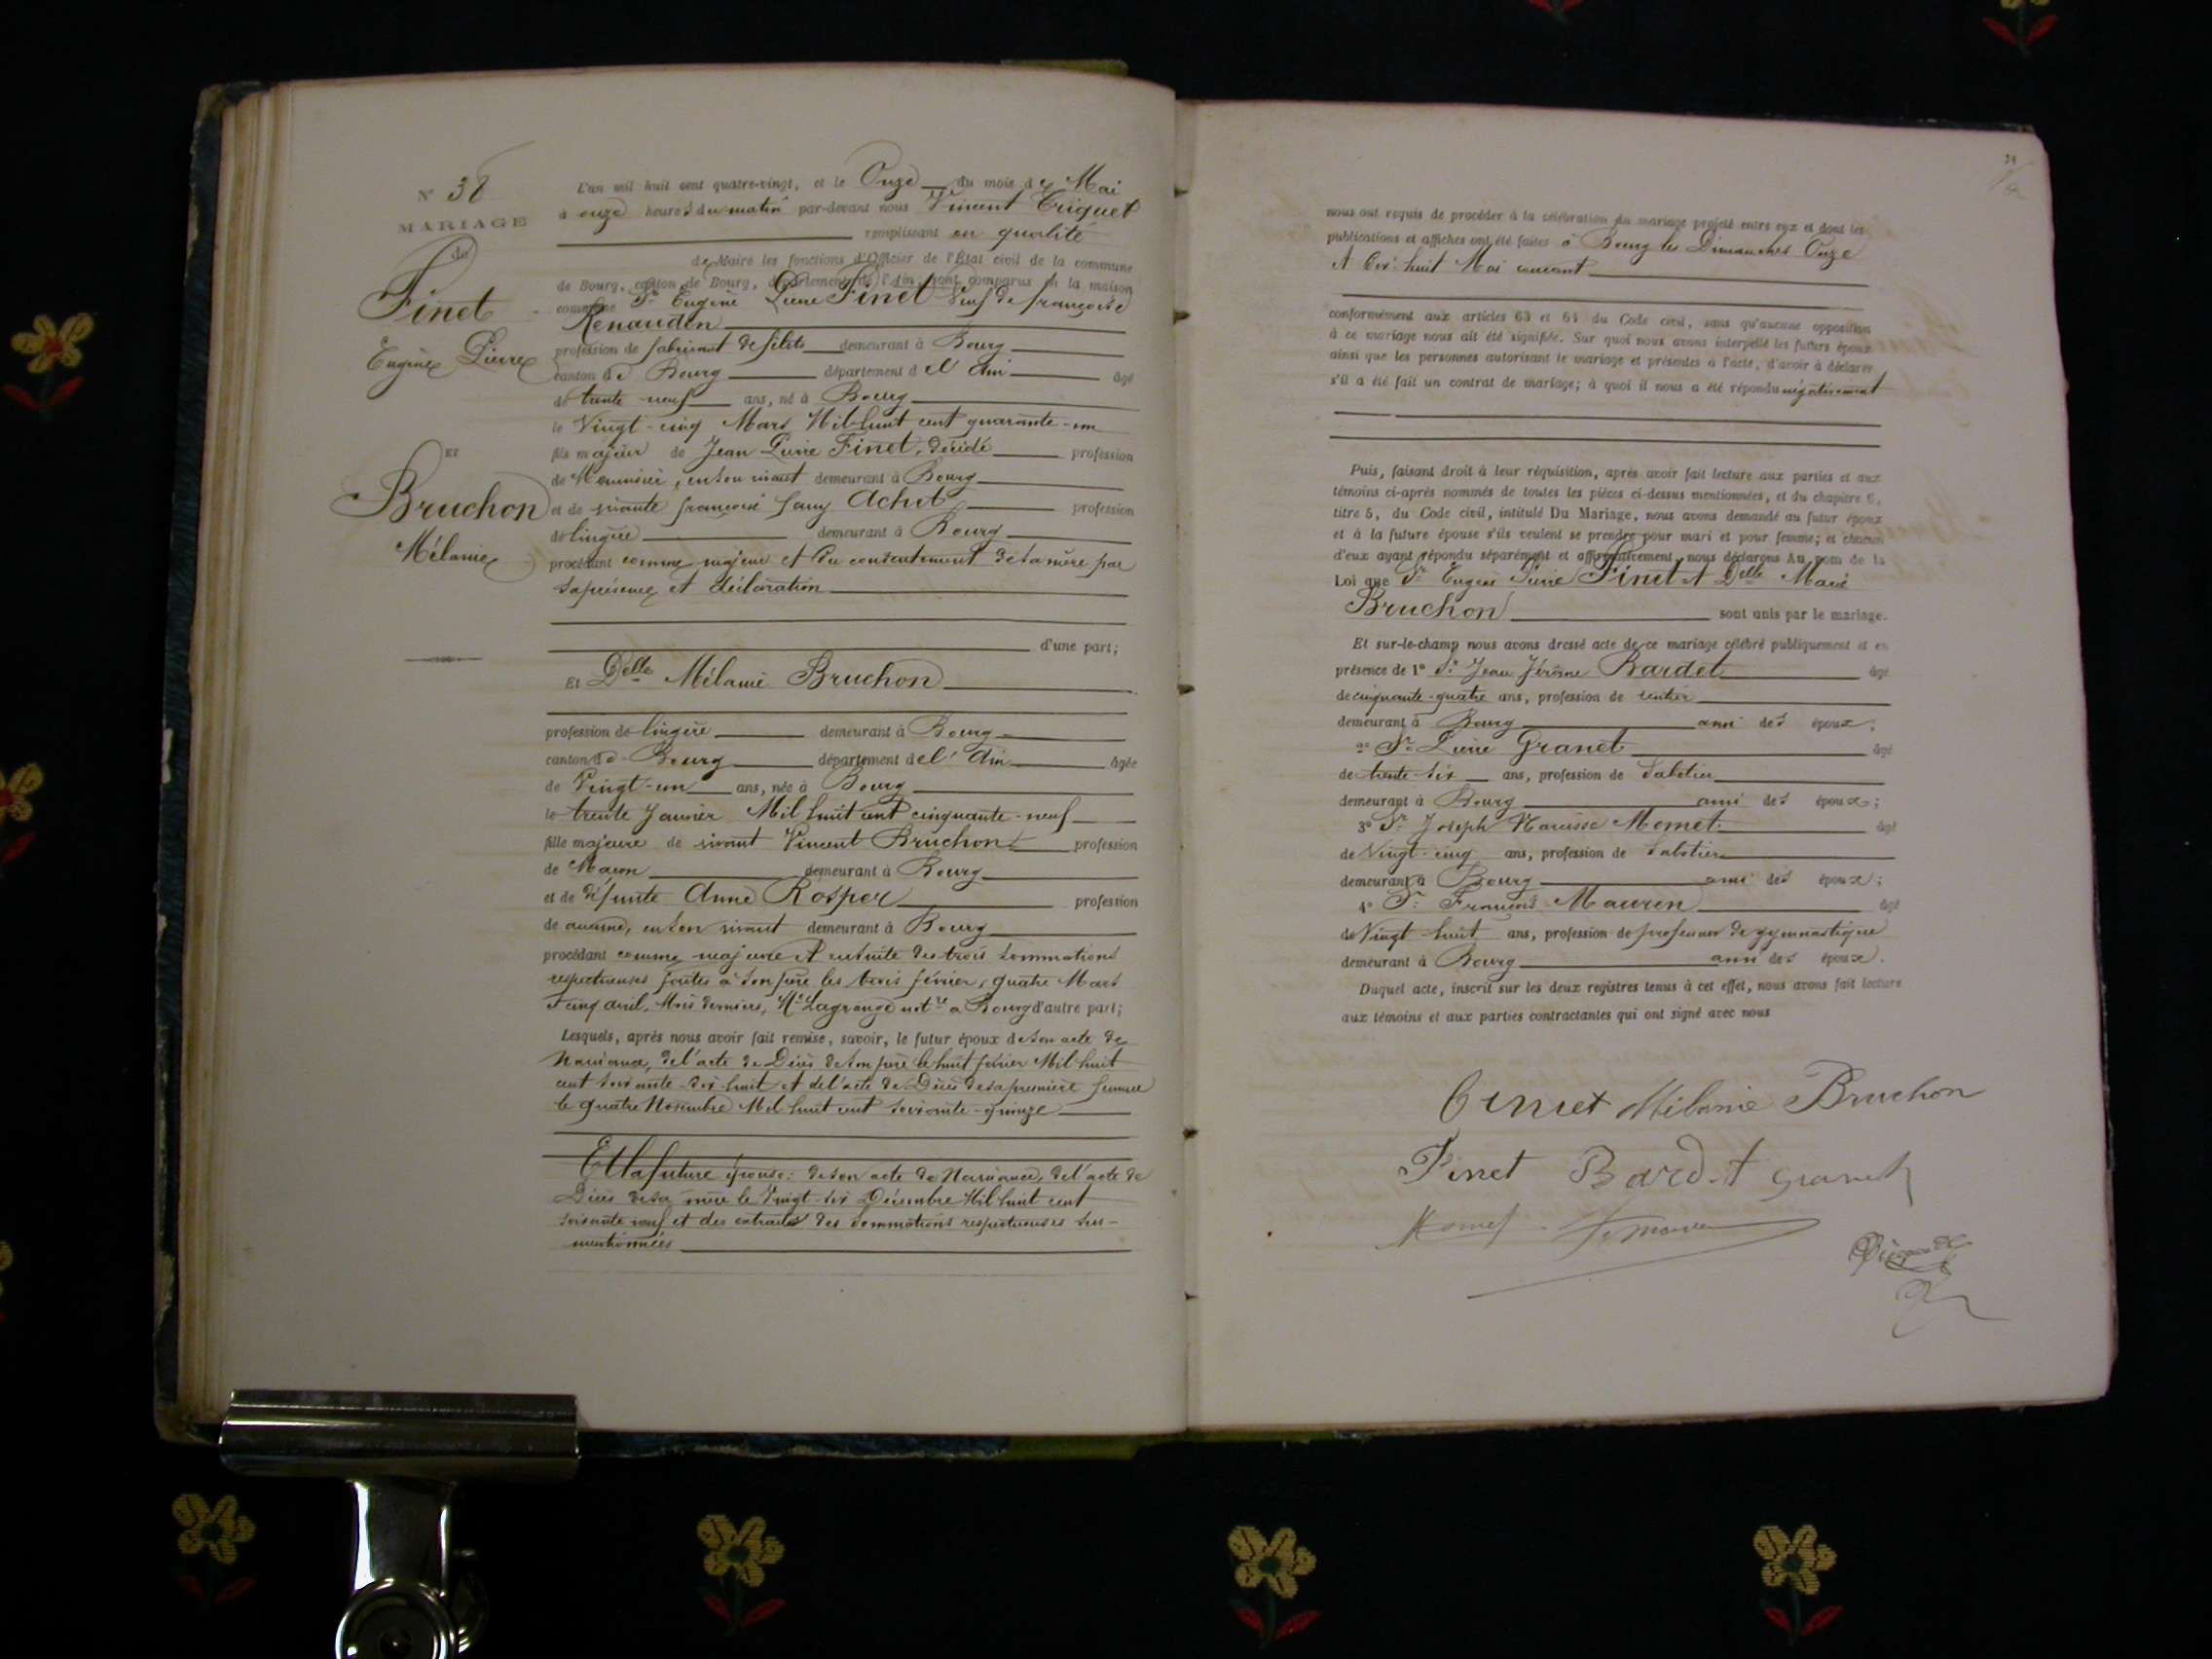 N° 38
MARIAGE
de
Finet
Eugène Pierre
ET
Bruchon
Mélanie
L'an mil huit cent quatre-vingt, et le Onze du mois de Mai
à onze heures du matin par-devant nous Vincent
remplissant en qualité
de Maire les fonctions d'Officier de l'État civil de la commune
de Bourg, canton de Bourg, département de l'Ain, sont comparus en la maison
commune Sr Eugène Pierre Finet veuf de françoise
Renaudin
profession de fabricant de filets demeurant à Bourg
canton de Bourg département de l'Ain âgé
de trente neuf ans, né à Bourg
le Vingt-cinq Mars Mil huit cent quarante-un
fils majeur de Jean Pierre Finet, décédé profession
de Menuisier, en son vivant demeurant à Bourg
et de vivante françoise fany Achet profession
de lingère demeurant à Bourg
procédant comme majeur et du consentement de sa mère par
sa présence et déclaration
d'une part;
Et Delle Mélanie Bruchon
profession de lingère demeurant à Bourg
canton de Bourg département de l'Ain âgée
de Vingt-un ans, née à Bourg
le trente Janvier Mil huit cent cinquante-neuf
fille majeure de vivant Vincent Bruchon profession
de Maçon demeurant à Bourg
et de défunte Anne Rosper profession
de aucune, en son vivant demeurant à Bourg
procédant comme majeure et ensuite des trois sommations
respectueuses faites à son père les trois février, quatre Mars
et cinq avril, Mois derniers, Me Lagrange notre à Bourg d'autre part;
Lesquels, après nous avoir fait remise, savoir, le futur époux de son acte de
Naissance, de l'acte de Décès de son père le huit février Mil huit
cent soixante-dix huit et de l'acte de Décès de sa première femme
le quatre Novembre Mil huit cent soixante-quinze
Et la future épouse: de son acte de Naissance, de l'acte de
Décès de sa mère le Vingt-six Décembre Mil huit cent
soixante neuf et des extraits des sommations respectueuses sus-
mentionnées
nous ont requis de procéder à la célébration du mariage projeté entre eux et dont les
publications et affiches ont été faites à Bourg les Dimanches Onze
et Dix-huit Mai courant
conformément aux articles 63 et 64 du Code civil, sans qu'aucune opposition
à ce mariage nous ait été signifiée. Sur quoi nous avons interpellé les futurs époux
ainsi que les personnes autorisant le mariage et présentes à l'acte, d'avoir à déclarer
s'il a été fait un contrat de mariage; à quoi il nous a été répondu négativement
Puis, faisant droit à leur réquisition, après avoir fait lecture aux parties et aux
témoins ci-après nommés de toutes les pièces ci-dessus mentionnées, et du chapitre 6,
titre 5, du Code civil, intitulé Du Mariage, nous avons demandé au futur époux
et à la future épouse s'ils veulent se prendre pour mari et pour femme; et chacun
d'eux ayant répondu séparément et affirmativement nous déclarons Au nom de la
Loi que Sr Eugène Pierre Finet et Delle Marie
Bruchon sont unis par le mariage.
Et sur-le-champ nous avons dressé acte de ce mariage célébré publiquement et en
présence de 1° Sr Jean Jérôme Bardet âgé
de cinquante-quatre ans, profession de rentier
demeurant à Bourg ami des époux;
2° Sr Pierre Granet âgé
de trente-six ans, profession de Sabotier
demeurant à Bourg ami des époux;
3° Sr Joseph Narcisse Momet âgé
de Vingt-cinq ans, profession de Sabotier
demeurant à Bourg ami des époux;
4° Sr François Maurin âgé
de Vingt huit ans, profession de professeur de gymnastique
demeurant à Bourg ami des époux.
Duquel acte, inscrit sur les deux registres tenus à cet effet, nous avons fait lecture
aux témoins et aux parties contractantes qui ont signé avec nous
Mélanie Bruchon
Finet Bardet Granet